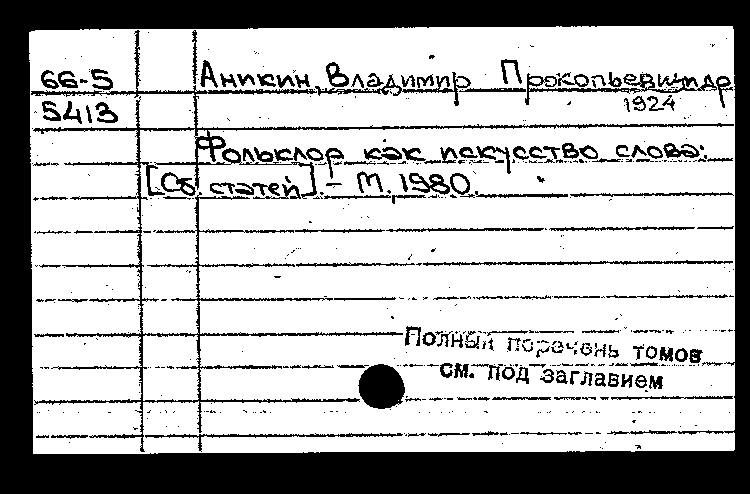 66-5 Аникин, Владимир Прокопьевич, др
5413 1924
Фольклор как искусство слова:
[Сб. статей] – М. 1980.
Полный перечень томов
см. под заглавием